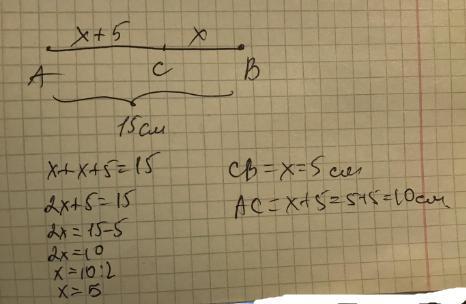 x+5 x
A C B
15см
x+x+5=15
2x+5=15
2x=15-5
2x=10
x=10:2
x=5
CB=x=5см
AC=x+5=5+5=10см